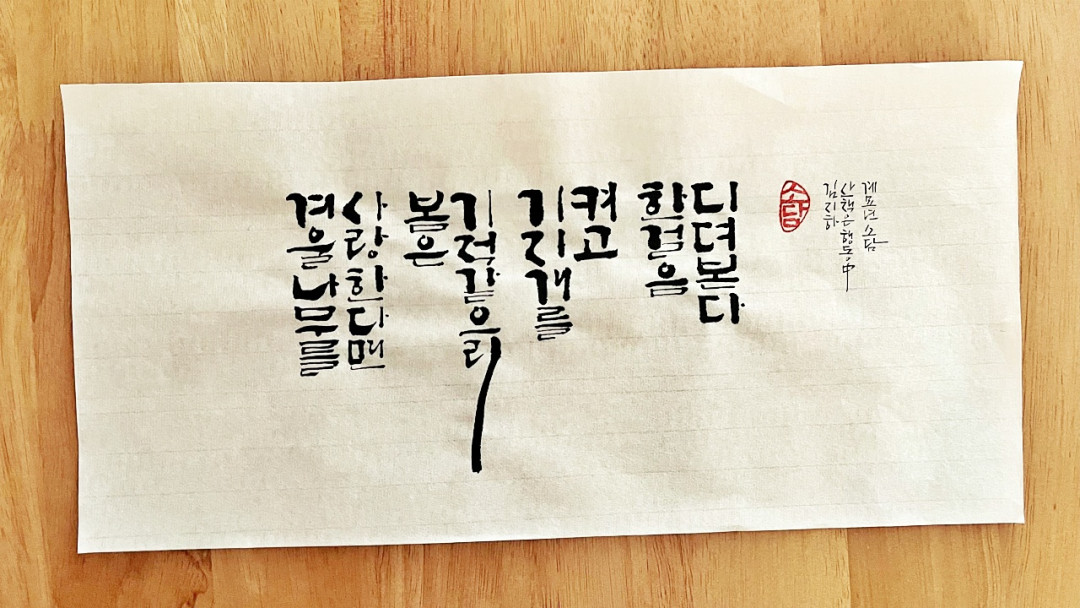 겨울 나무를
사랑한다면
봄은
기적같으리
기지개를
켜고
한걸음
디뎌본다
소담
김리하
산책은 행동中
계묘년 소담